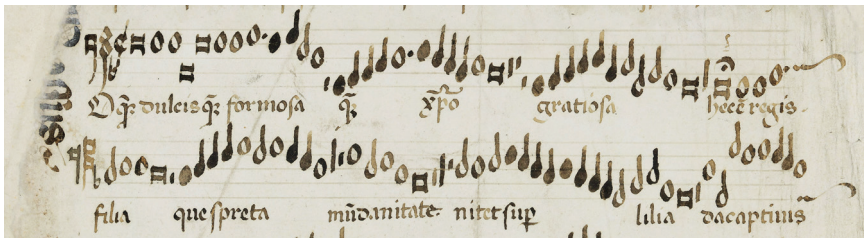 O q̃ȝ dulcis q̃ȝ formosa q̃ȝ xp̄o gratiosa hec ē regis
filia que spreta mūdanitate nitet suꝑ lilia da captiuis